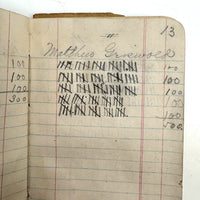 13
Matthew Griswold
100
100
100
100
100
500
100
100
100
300